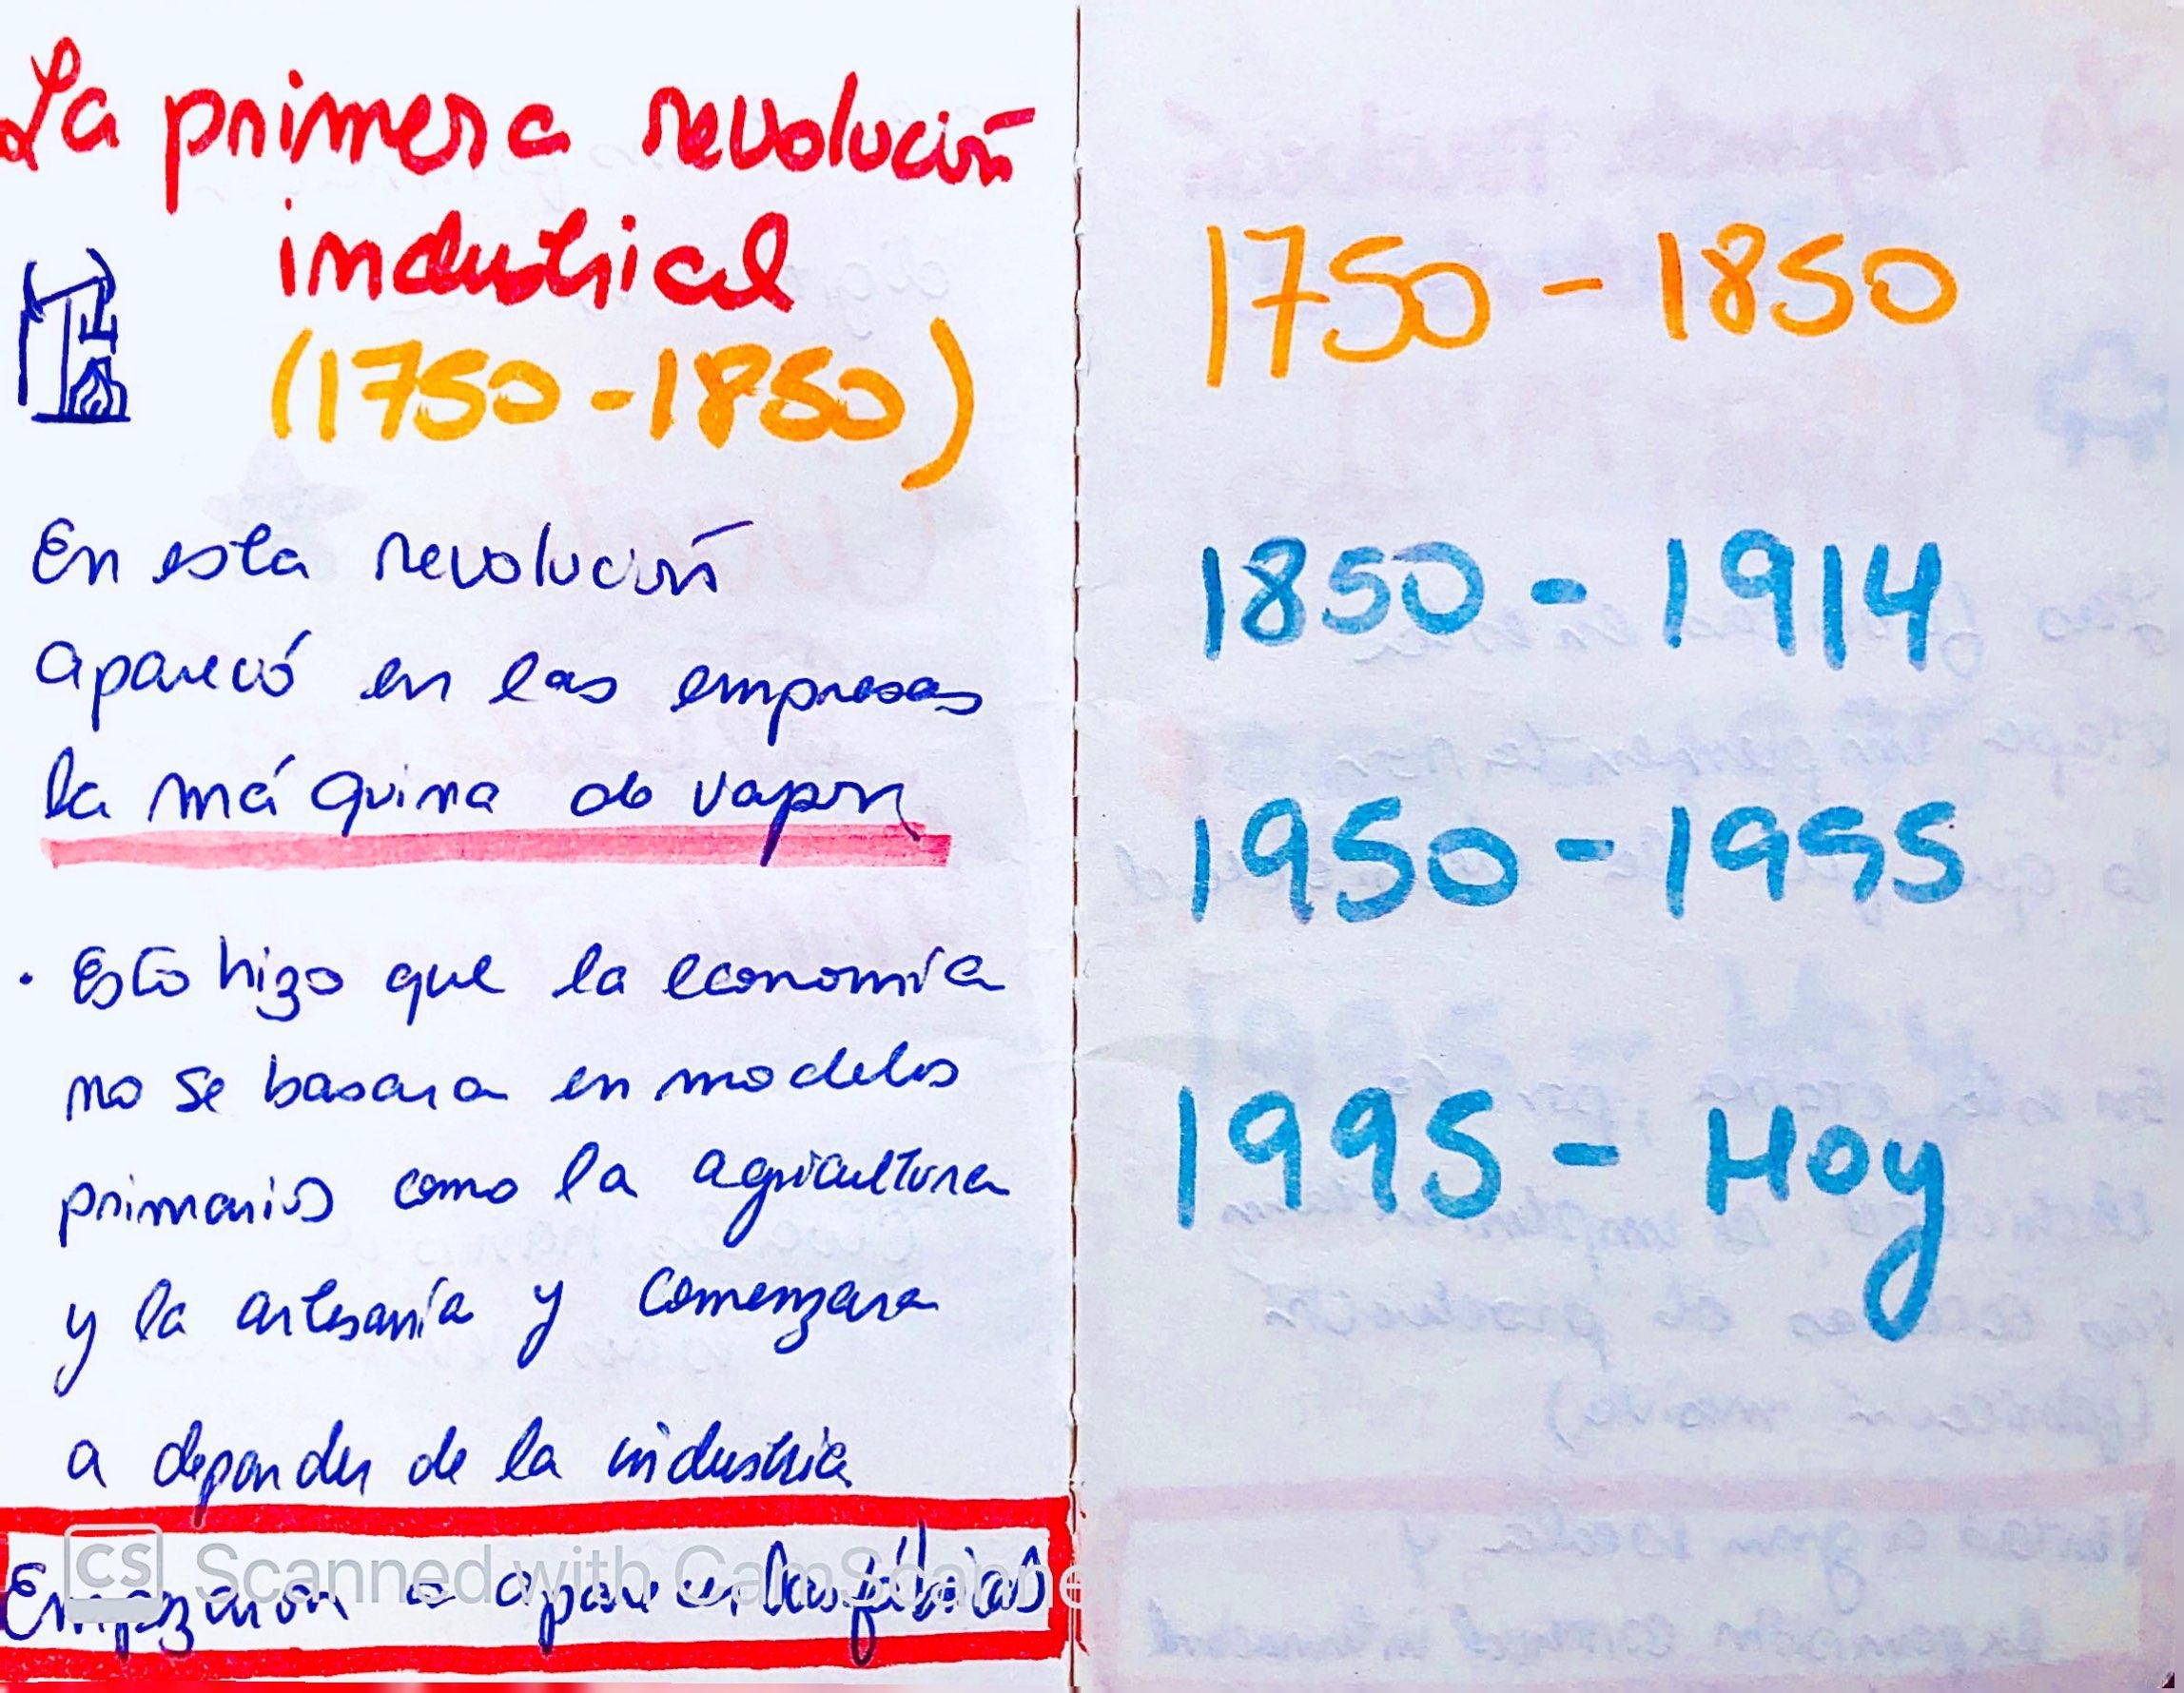 La primera revolución
industrial
(1750-1850)
En esta revolución
apareció en las empresas
la máquina de vapor
· Esto hizo que la economía
no se basara en modelos
primarios como la agricultura
y la artesanía y comenzara
a depender de la industria
Empezaron a aparecer las fábricas
CS Scanned with CamScanne
1750 - 1850
1850 - 1914
1950 - 1995
1995 - Hoy